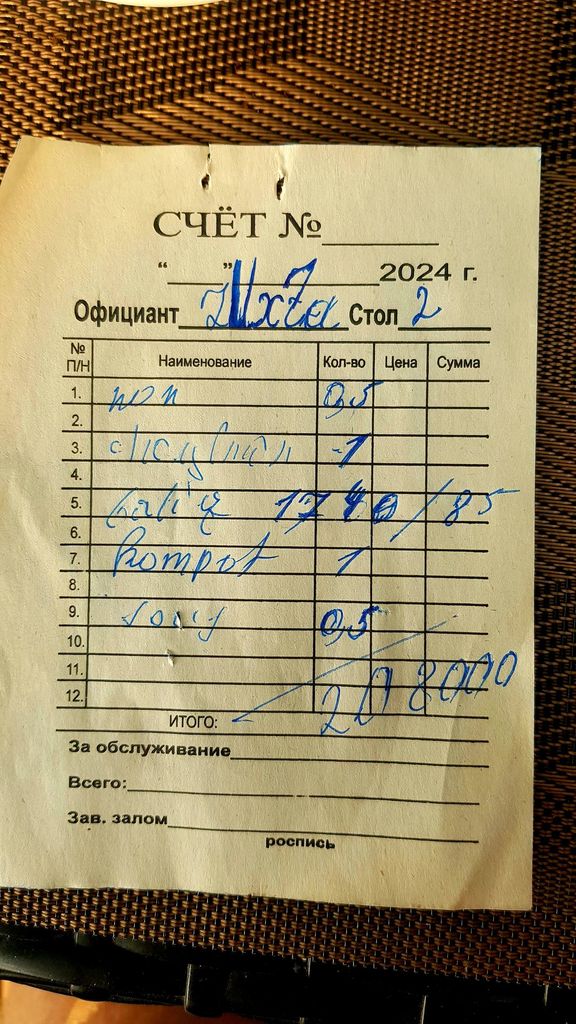 СЧЁТ №
“ ” 2024 г.
Официант Стол 2
№ П/Н Наименование Кол-во Цена Сумма
1. non 0,5
2.
3. 1
4.
5. 1740/85
6.
7. kompot 1
8.
9. 0,5
10.
11.
12. 208000
ИТОГО:
За обслуживание
Всего:
Зав. залом
роспись